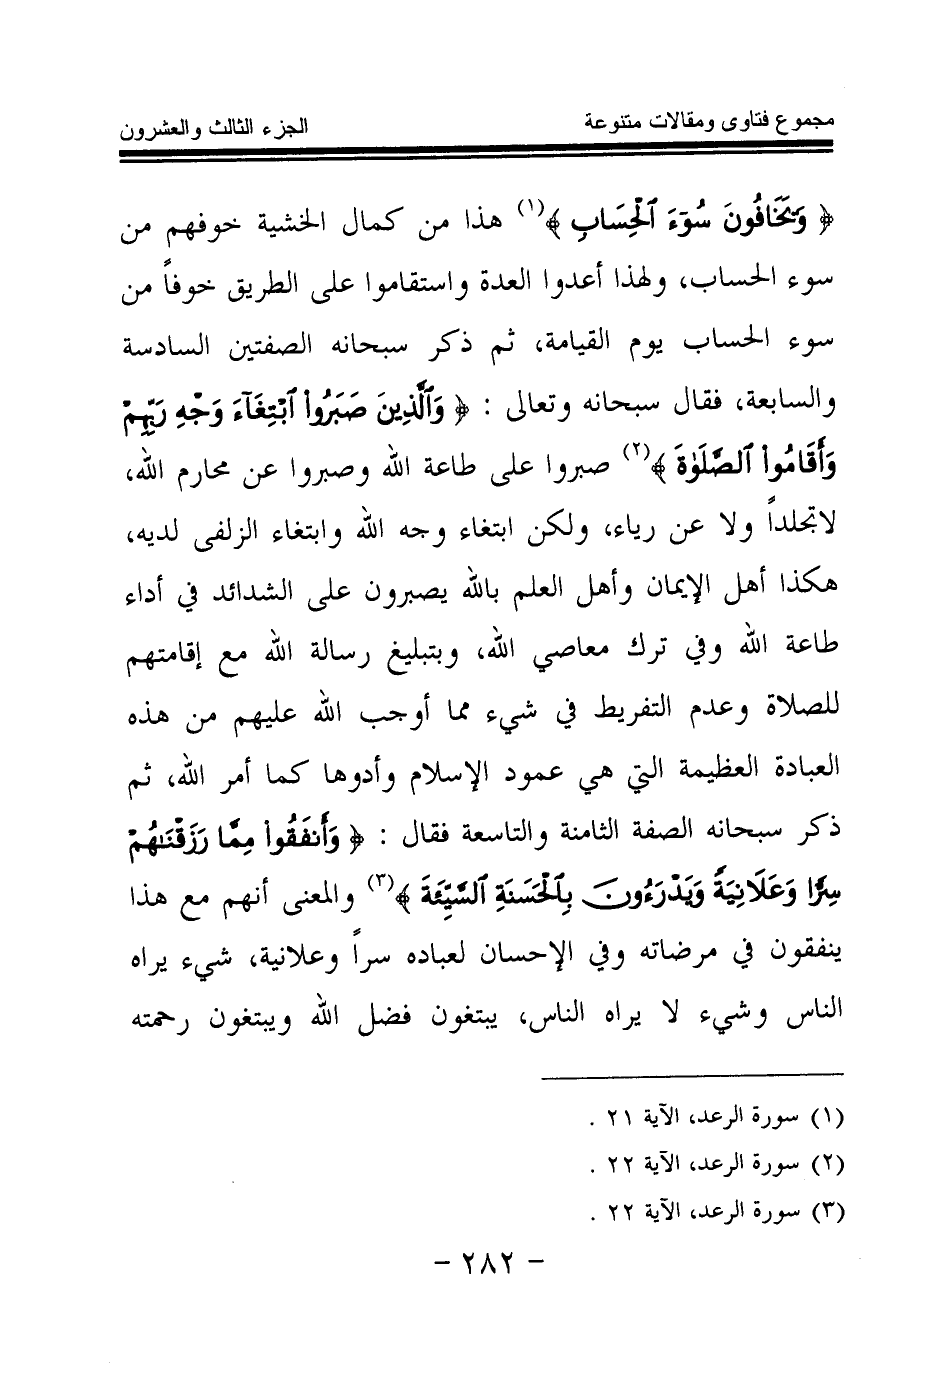 مجموع فتاوى ومقالات متنوعة الجزء الثالث والعشرون
﴿ وَيَخَافُونَ سُوٓءَ ٱلْحِسَابِ ﴾(١) هذا من كمال الخشية خوفهم من
سوء الحساب، ولهذا أعدوا العدة واستقاموا على الطريق خوفاً من
سوء الحساب يوم القيامة، ثم ذكر سبحانه الصفتين السادسة
والسابعة، فقال سبحانه وتعالى : ﴿ وَٱلَّذِينَ صَبَرُوا۟ ٱبْتِغَآءَ وَجْهِ رَبِّهِمْ
وَأَقَامُوا۟ ٱلصَّلَوٰةَ ﴾(٢) صبروا على طاعة الله وصبروا عن محارم الله،
لاتجلداً ولا عن رياء، ولكن ابتغاء وجه الله وابتغاء الزلفى لديه،
هكذا أهل الإيمان وأهل العلم بالله يصبرون على الشدائد في أداء
طاعة الله وفي ترك معاصي الله، وبتبليغ رسالة الله مع إقامتهم
للصلاة وعدم التفريط في شيء مما أوجب الله عليهم من هذه
العبادة العظيمة التي هي عمود الإسلام وأدوها كما أمر الله، ثم
ذكر سبحانه الصفة الثامنة والتاسعة فقال : ﴿ وَأَنفَقُوا۟ مِمَّا رَزَقْنَٰهُمْ
سِرًّا وَعَلَانِيَةً وَيَدْرَءُونَ بِٱلْحَسَنَةِ ٱلسَّيِّئَةَ ﴾(٣) والمعنى أنهم مع هذا
ينفقون في مرضاته وفي الإحسان لعباده سراً وعلانية، شيء يراه
الناس وشيء لا يراه الناس، يبتغون فضل الله ويبتغون رحمته
(١) سورة الرعد، الآية ٢١ .
(٢) سورة الرعد، الآية ٢٢ .
(٣) سورة الرعد، الآية ٢٢ .
- ٢٨٢ -